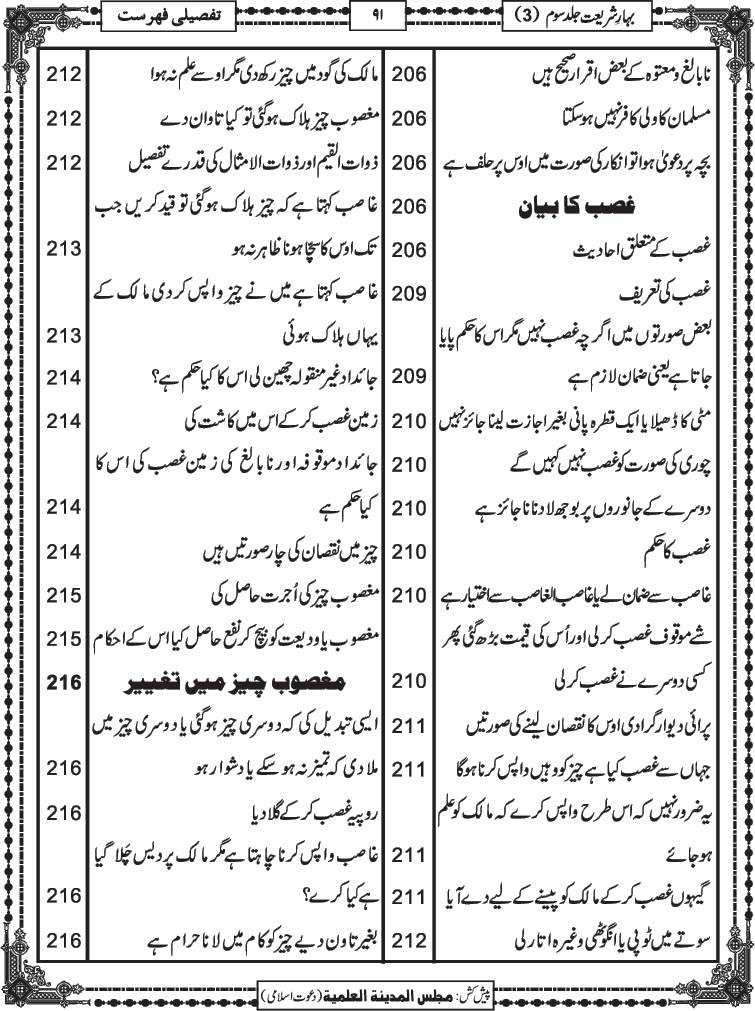 بہار شریعت جلد سوم (3)
۹۱
تفصیلی فہرست
نابالغ و معتوہ کے بعض اقرار صحیح ہیں 206
مسلمان کا ولی کافر نہیں ہو سکتا 206
بچہ پر دعویٰ ہوا تو انکار کی صورت میں اوس پر حلف ہے 206
غصب کا بیان 206
غصب کے متعلق احادیث 206
غصب کی تعریف 209
بعض صورتوں میں اگرچہ غصب نہیں مگر اس کا حکم پایا
جاتا ہے یعنی ضمان لازم ہے 209
مٹی کا ڈھیلا یا ایک قطرہ پانی بغیر اجازت لینا جائز نہیں 210
چوری کی صورت کو غصب نہیں کہیں گے 210
دوسرے کے جانوروں پر بوجھ لادنا ناجائز ہے 210
غصب کا حکم 210
غاصب سے ضمان لے یا غاصب الغاصب سے اختیار ہے 210
شے موقوف غصب کر لی اور اُس کی قیمت بڑھ گئی پھر
کسی دوسرے نے غصب کر لی 210
پرائی دیوار گرا دی اوس کا نقصان لینے کی صورتیں 211
جہاں سے غصب کیا ہے چیز کو وہیں واپس کرنا ہوگا 211
یہ ضرور نہیں کہ اس طرح واپس کرے کہ مالک کو علم
ہو جائے 211
گیہوں غصب کر کے مالک کو پیسنے کے لیے دے آیا 211
سوتے میں ٹوپی یا انگوٹھی وغیرہ اتار لی 212
مالک کی گود میں چیز رکھ دی مگر اوسے علم نہ ہوا 212
مغصوب چیز ہلاک ہوگئی تو کیا تاوان دے 212
ذوات القیم اور ذوات الامثال کی قدرے تفصیل 212
غاصب کہتا ہے کہ چیز ہلاک ہوگئی تو قید کریں جب
تک اوس کا سچا ہونا ظاہر نہ ہو 213
غاصب کہتا ہے میں نے چیز واپس کر دی مالک کے
یہاں ہلاک ہوئی 213
جائداد غیر منقولہ چھین لی اس کا کیا حکم ہے؟ 214
زمین غصب کر کے اس میں کاشت کی 214
جائداد موقوفہ اور نابالغ کی زمین غصب کی اس کا
کیا حکم ہے 214
چیز میں نقصان کی چار صورتیں ہیں 214
مغصوب چیز کی اُجرت حاصل کی 215
مغصوب یا ودیعت کو بیچ کر نفع حاصل کیا اس کے احکام 215
مغصوب چیز میں تغییر 216
ایسی تبدیل کی کہ دوسری چیز ہوگئی یا دوسری چیز میں
ملا دی کہ تمیز نہ ہو سکے یا دشوار ہو 216
روپیہ غصب کر کے گلا دیا 216
غاصب واپس کرنا چاہتا ہے مگر مالک پردیس چلا گیا
ہے کیا کرے؟ 216
بغیر تاون دیے چیز کو کام میں لانا حرام ہے 216
پیش کش: مجلس المدینة العلمیة (دعوت اسلامی)